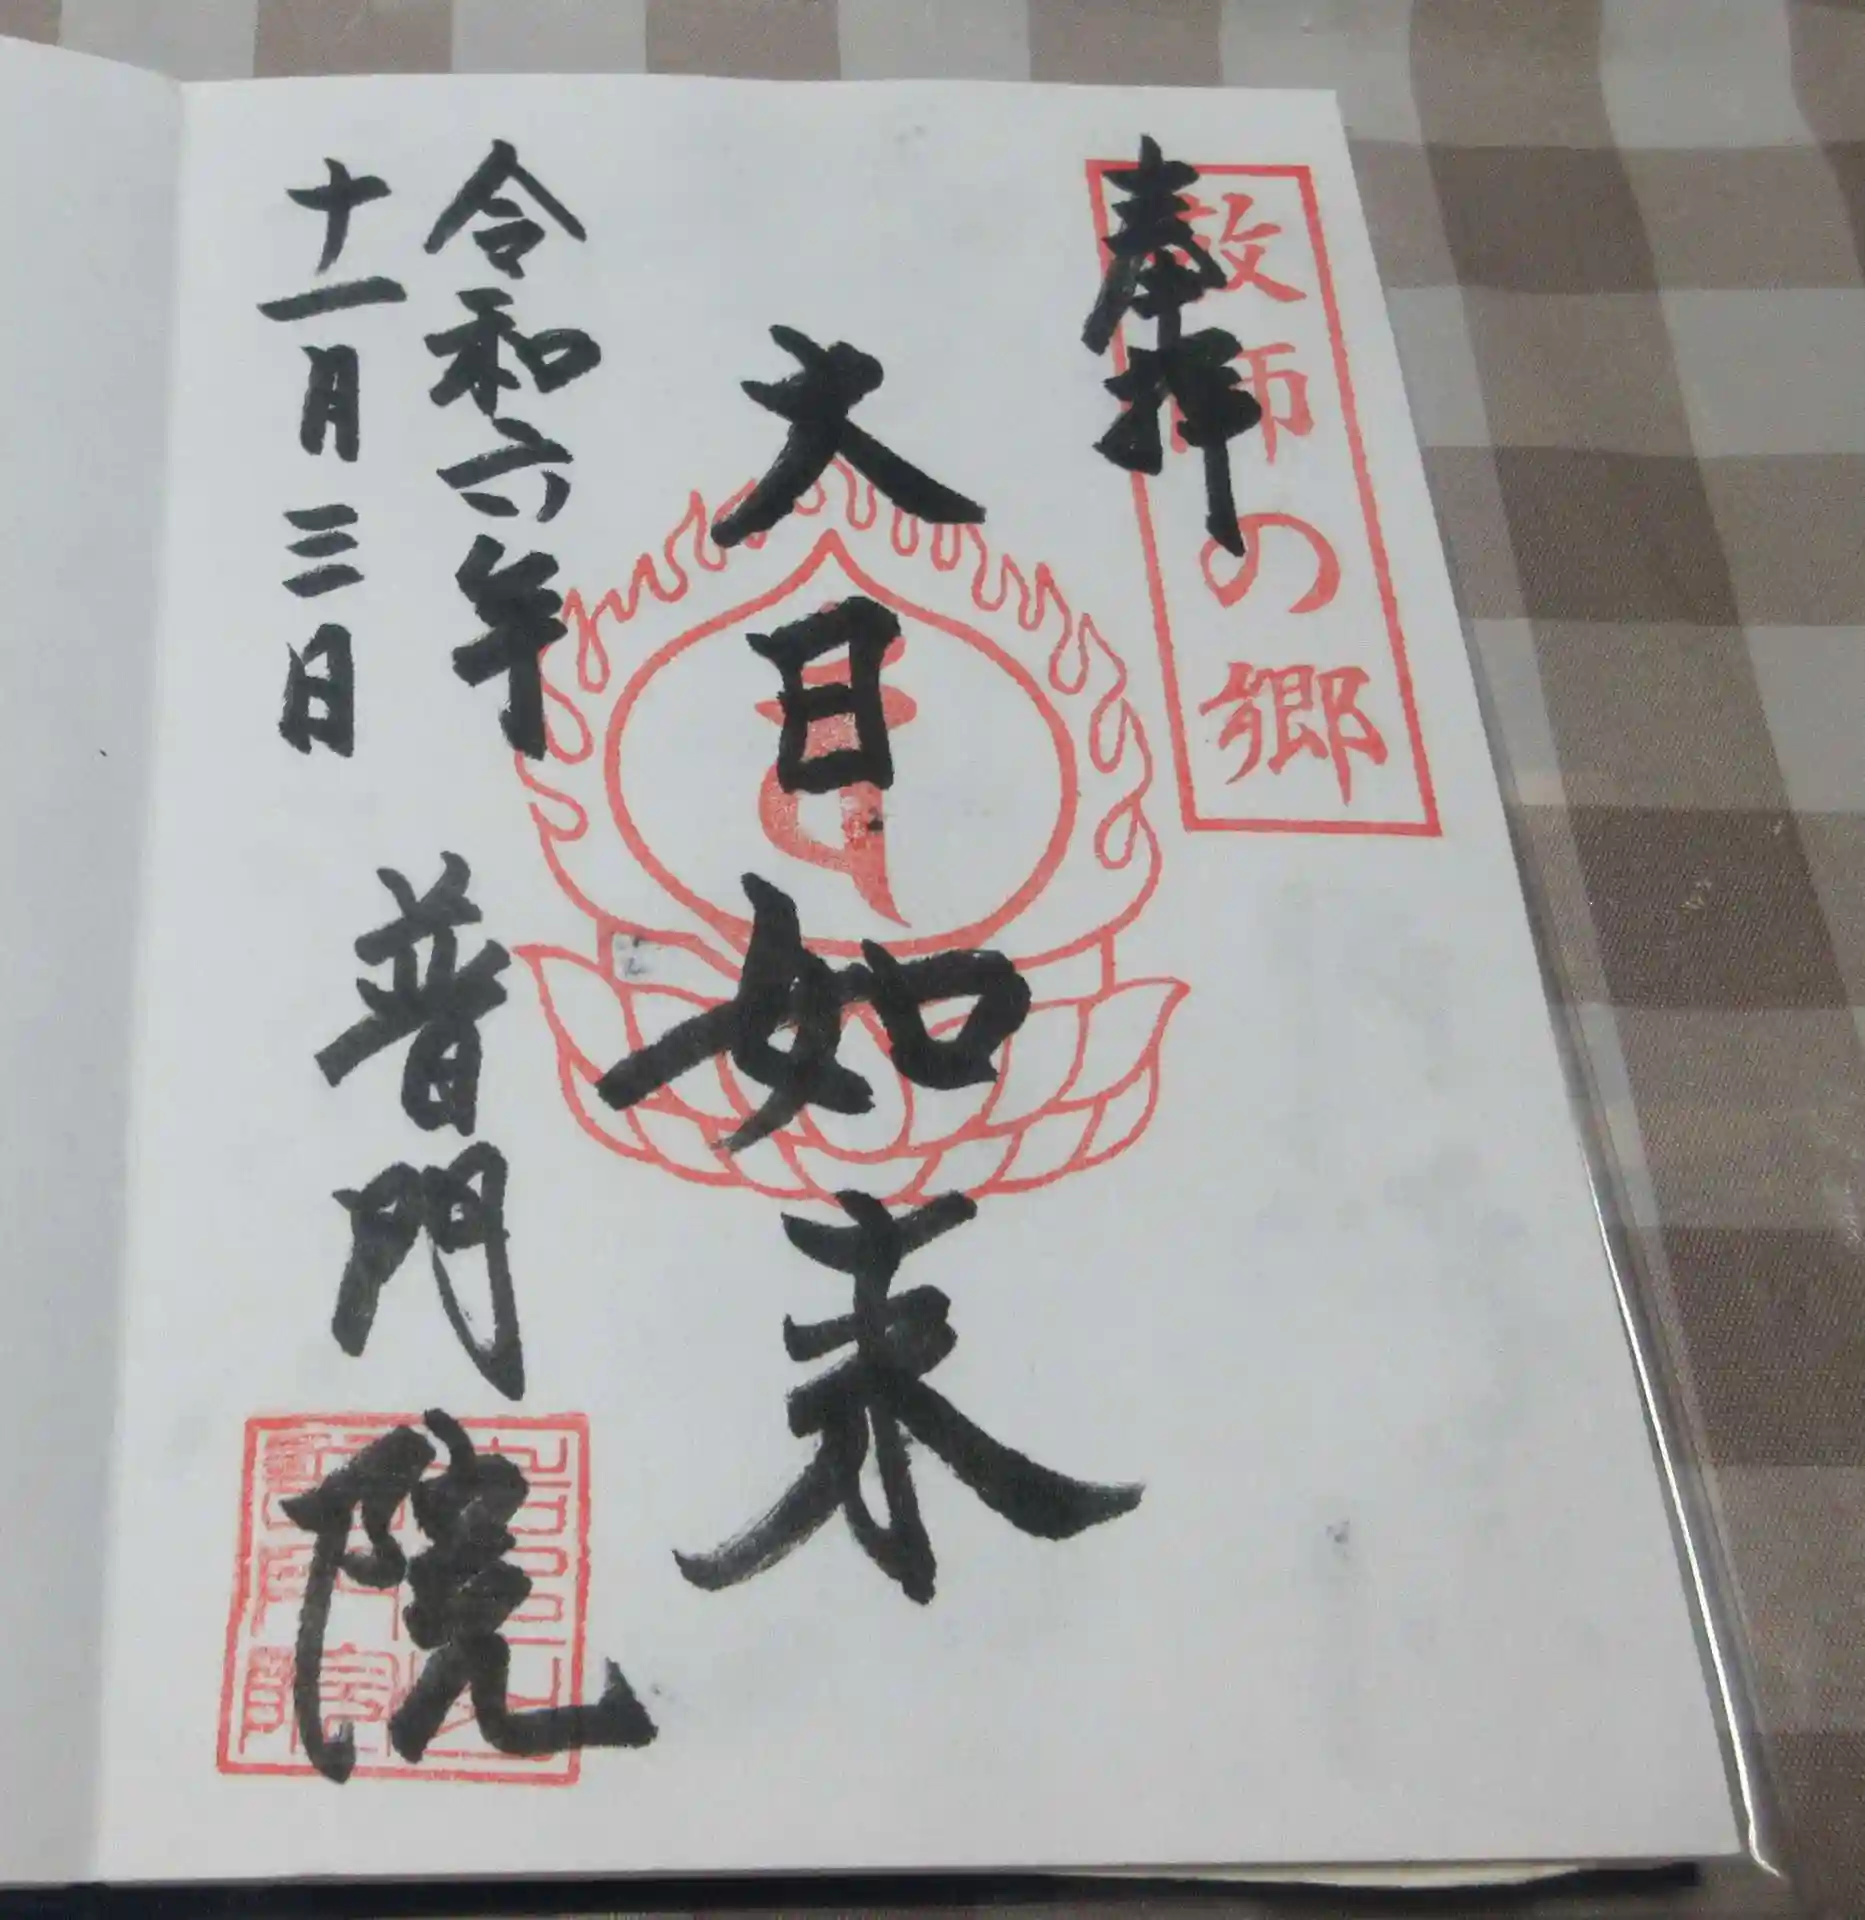 奉拝
師の郷
大日如来
令和六年
十一月三日
普門院